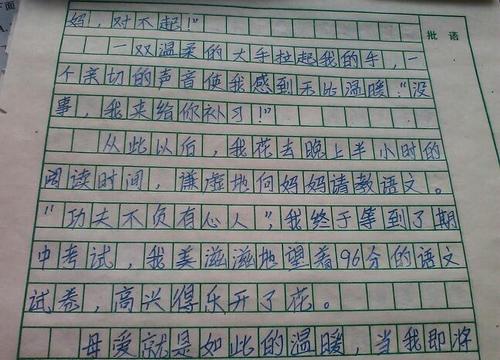 妈，对不起！"
批语
一双温柔的大手拉起我的手，一
个亲切的声音使我感到无比温暖："没
事，我来给你补习！"
从此以后，我花去晚上半小时的
阅读时间，谦虚地向妈妈请教语文。
"功夫不负有心人"，我终于等到了期
中考试，我美滋滋地望着96分的语文
试卷，高兴得乐开了花。
母爱就是如此的温暖，当我即将